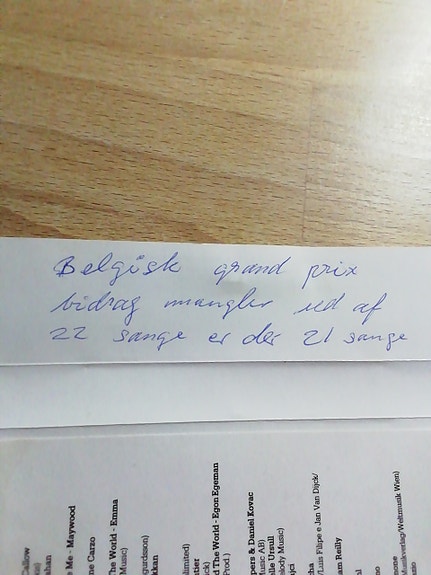 Belgisk grand prix
bidrag mangler ud af
22 sange er der 21 sange
ahan
Me - Maywood
ne Carzo
The World - Emma
Music)
gurdsson)
kkan
limited)
d The World - Egon Egeman
Prod.)
pers & Daniel Kovac
usic AB)
lle Ursull
elody Music)
ha
/Luis Filipe e Jan Van Dijck/
am Reilly
usikverlag/Weltmusik Wien)